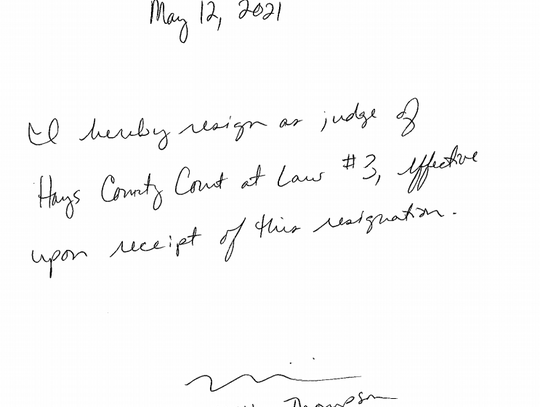 May 12, 2021
I hereby resign as judge of
Hays County Court at Law #3, effective
upon receipt of this resignation.
Thompson